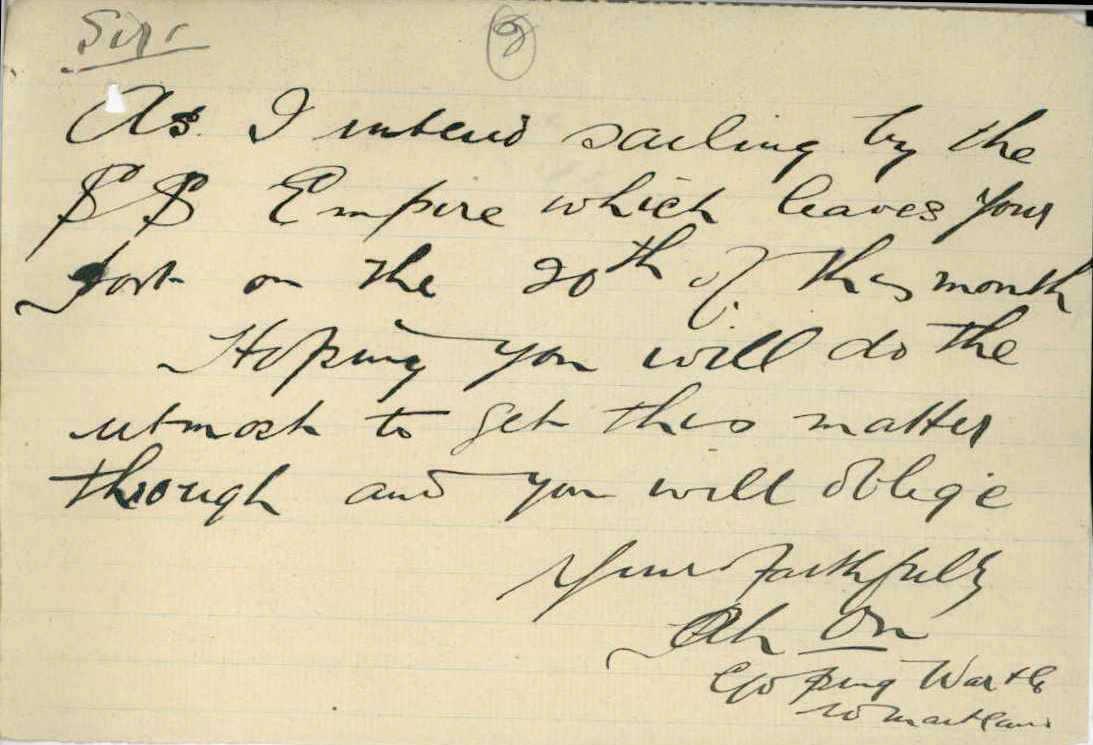 Sir
8
As I intend sailing by the
SS Empire which leaves your
port on the 20th of this month
Hoping you will do the
utmost to get this matter
through and you will oblige
Yours Faithfully
Ah On
C/o Ping War & Co
W Maitland